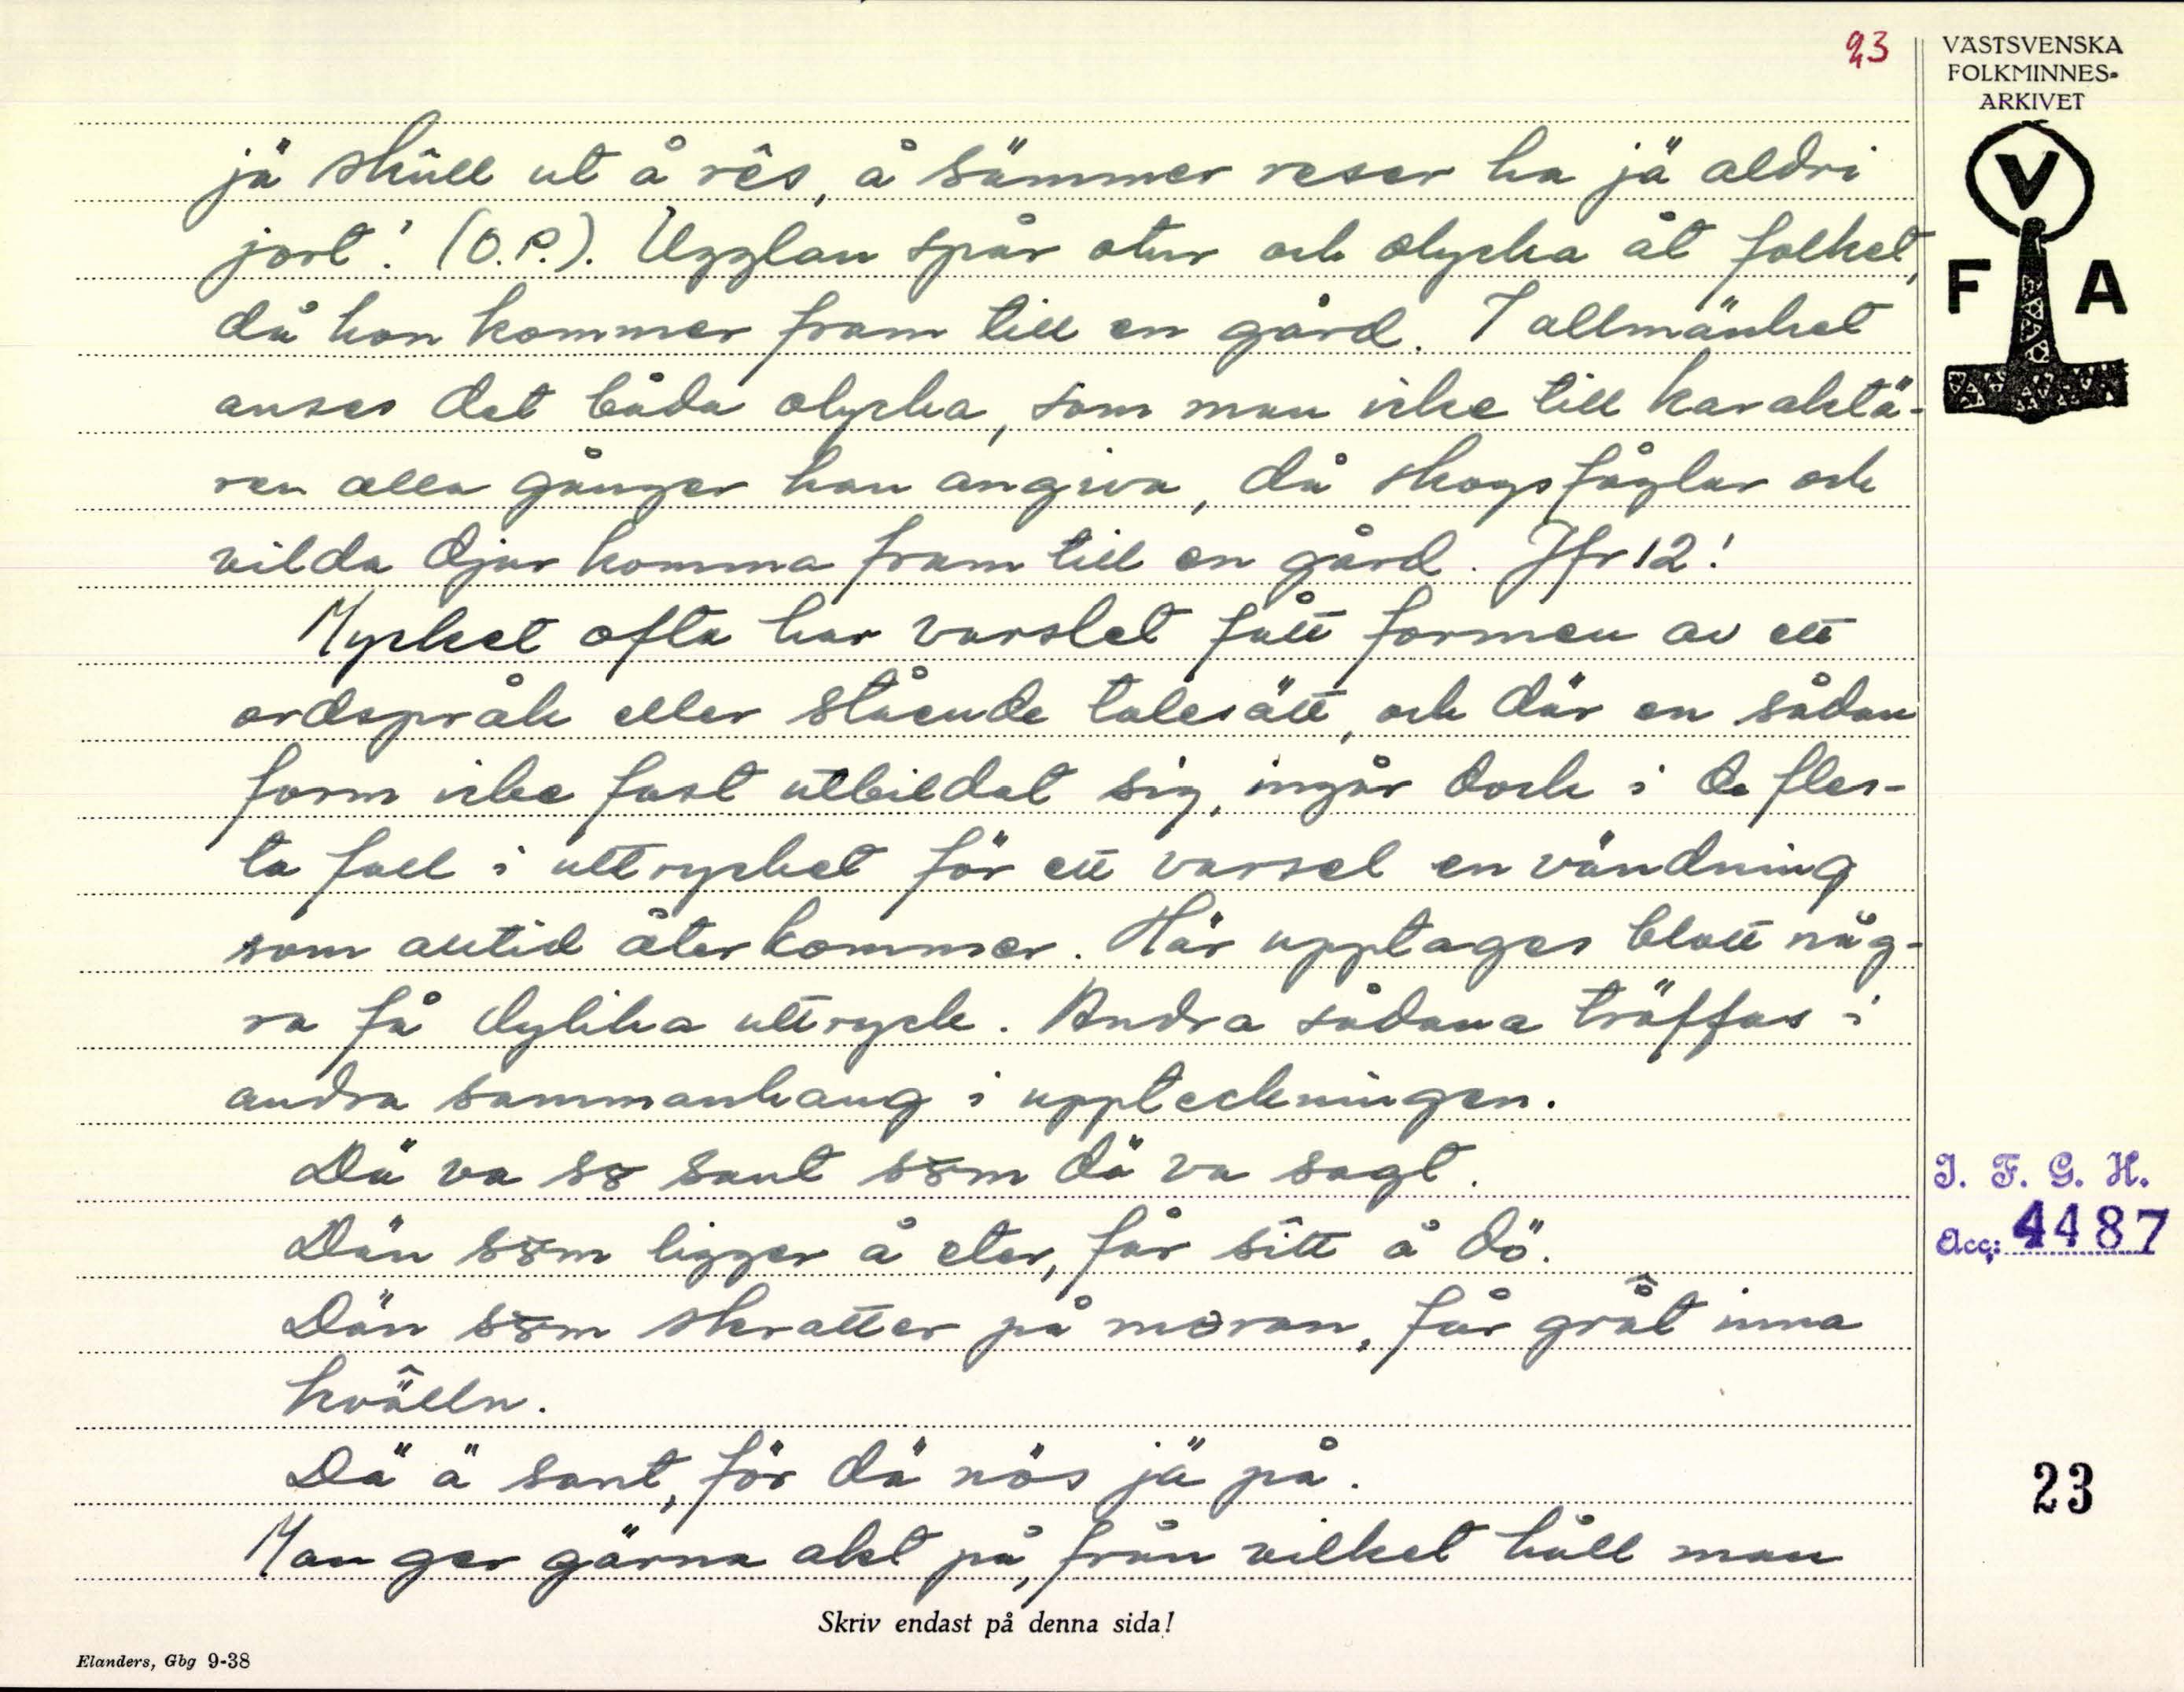 93
VÄSTSVENSKA
FOLKMINNES-
ARKIVET
V
F A
jä skûll ut å rês, å sämmer reser ha jä aldri
jort! (O.P.). Ugglan spår otur och olycka åt folket,
då hon kommer fram till en gård. I allmänhet
anses det båda olycka, som man icke till karaktä-
ren alla gånger kan angiva, då skogsfåglar och
vilda djur komma fram till en gård. Jfr 12!
Mycket ofta har varslet fått formen av ett
ordspråk eller stående talesätt, och där en sådan
form icke fast utbildat sig, ingår dock i de fles-
ta fall i uttrycket för ett varsel en vändning
som alltid återkommer. Här upptages blott någ-
ra få dylika uttryck. Andra sådana träffas i
andra sammanhang i uppteckningen.
Dä va sȣ sant sȣm dä va sagt.
Dän sȣm ligger å eter, får sîtt å dö.
Dän sȣm skratter på moran, får grå̂t inna
kvä̂lln.
Dä ä sant, för dä nös jä på.
Man ger gärna akt på, från vilket håll man
I. F. G. H.
Acc: 4487
23
Skriv endast på denna sida!
Elanders, Gbg 9-38